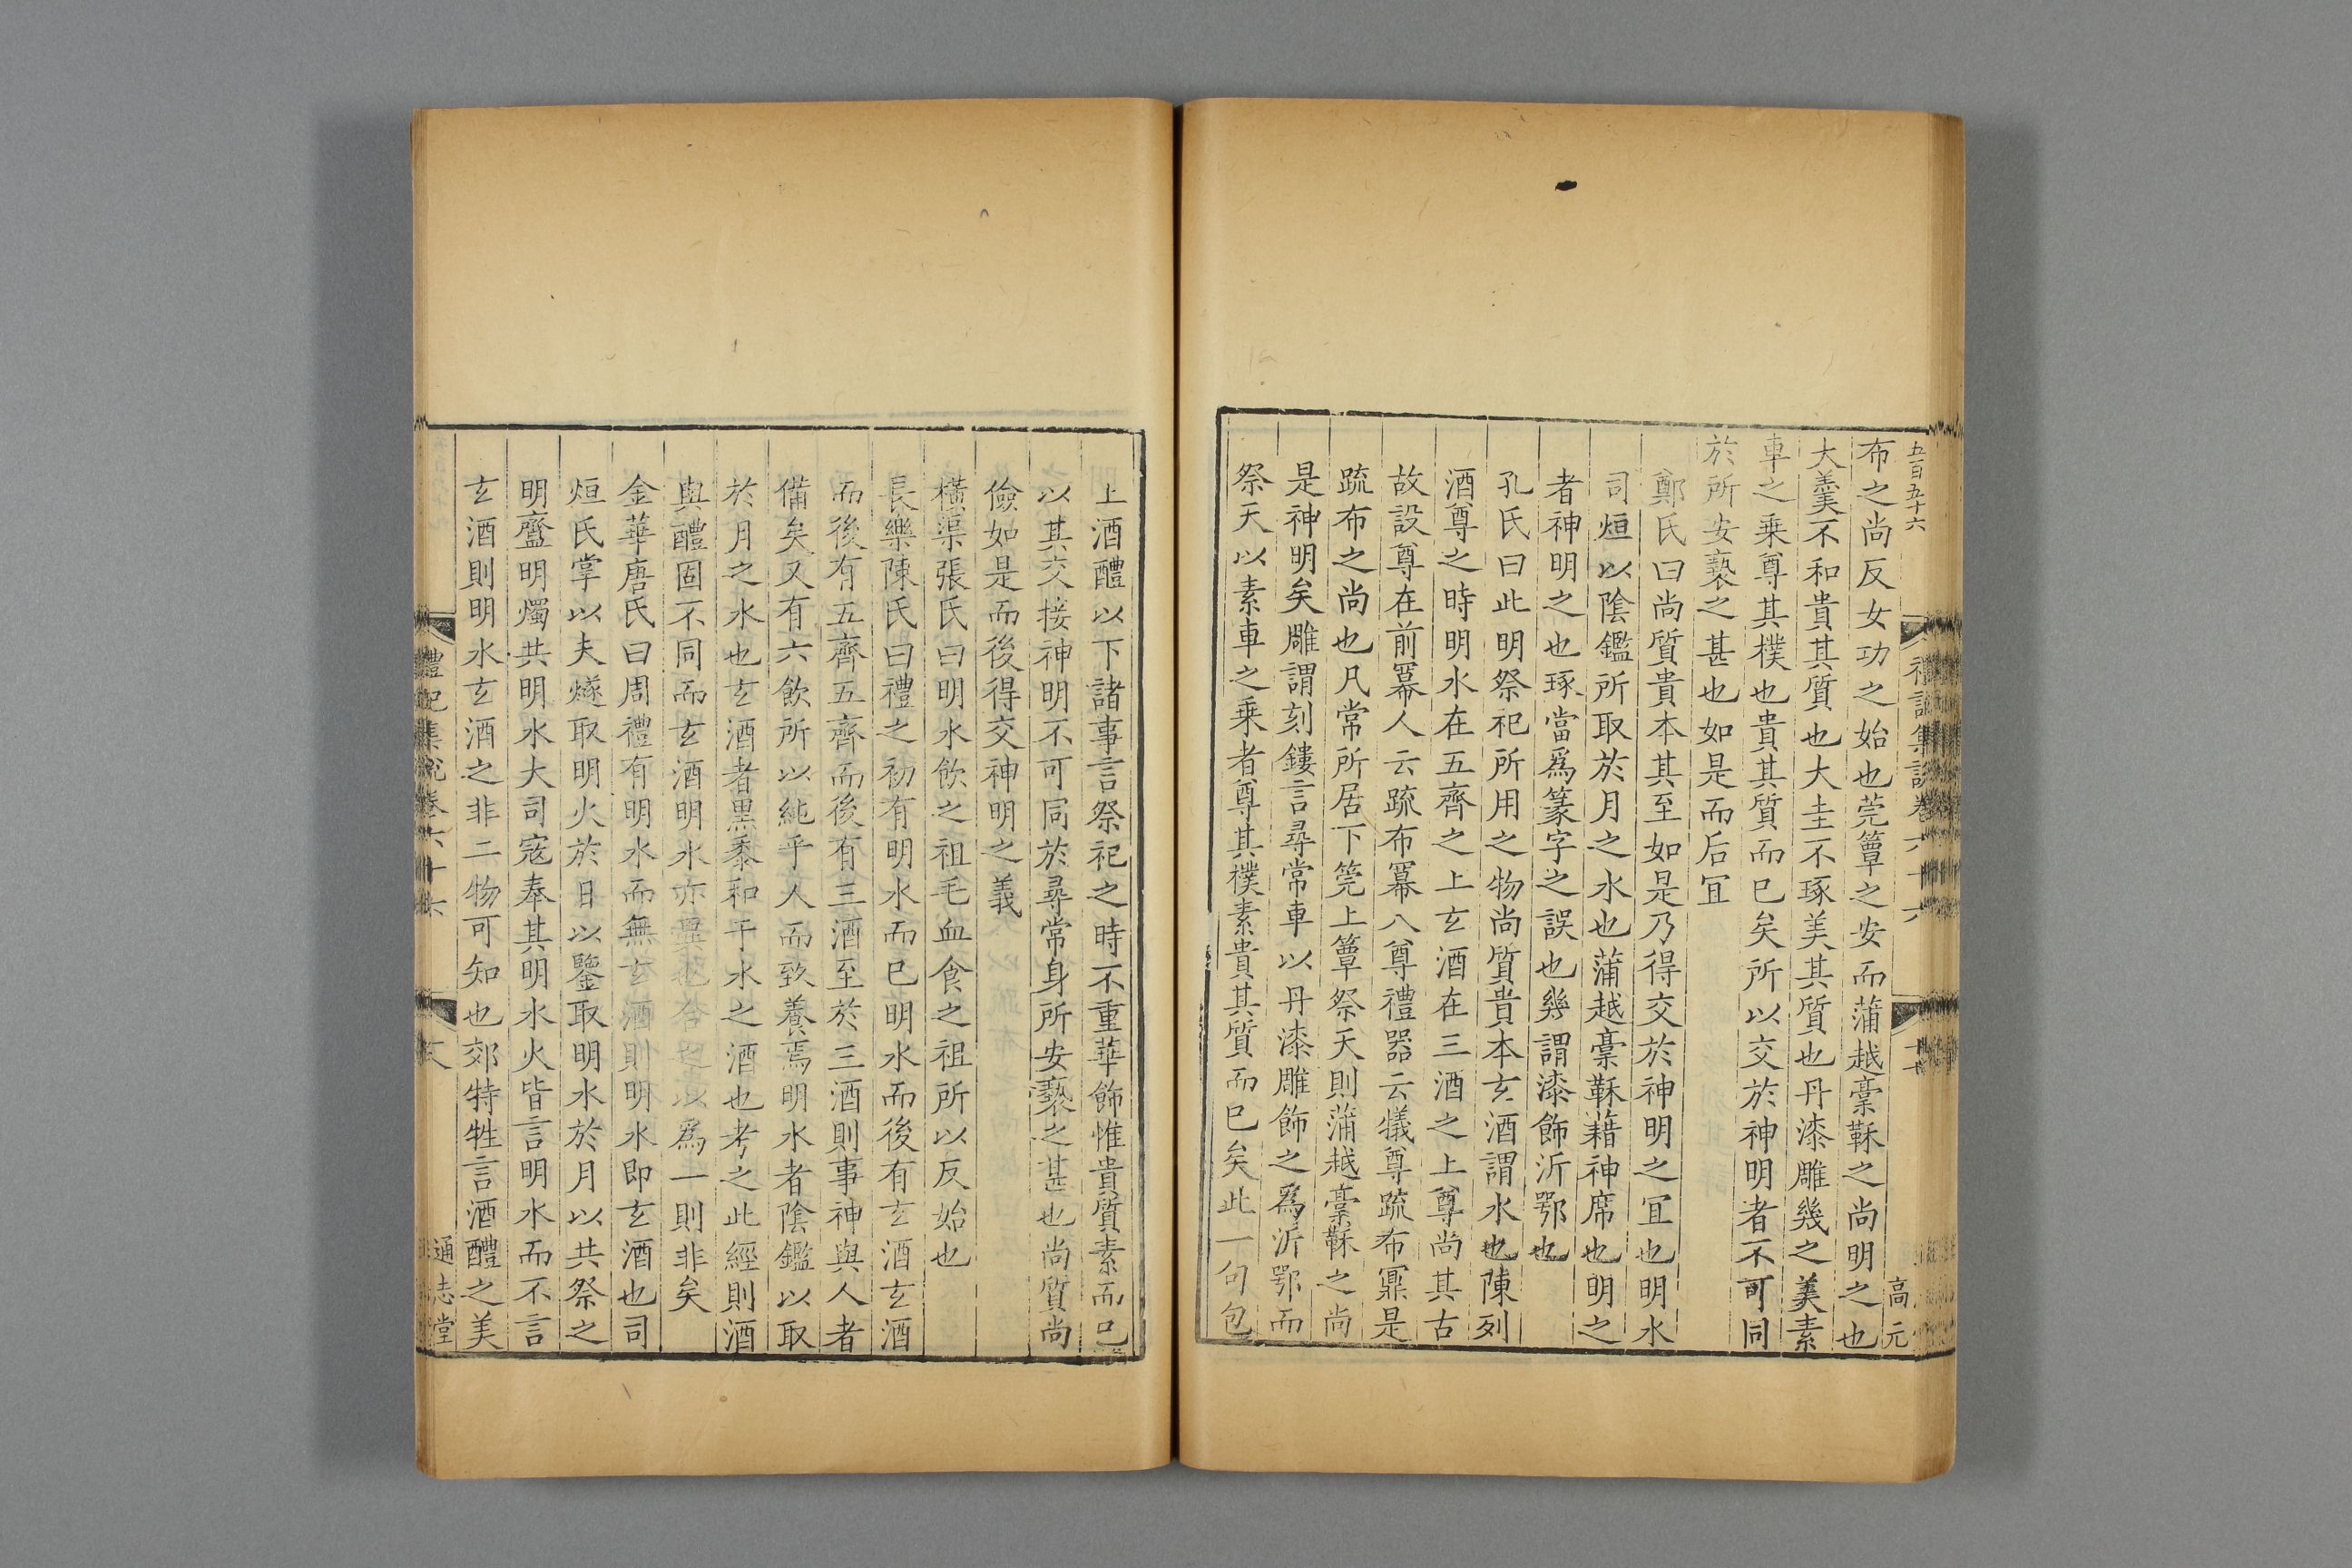 五百五十六
禮記集說卷六十六
高元
布之尚反女功之始也莞簟之安而蒲越稾鞂之尚明之也
大羹不和貴其質也大圭不琢美其質也丹漆雕幾之美素
車之乘尊其樸也貴其質而已矣所以交於神明者不可同
於所安褻之甚也如是而后宜
鄭氏曰尚質貴本其至如是乃得交於神明之宜也明水
司烜以陰鑑所取於月之水也蒲越稾鞂藉神席也明之
者神明之也琢當爲篆字之誤也幾謂漆飾沂鄂也
孔氏曰此明祭祀所用之物尚質貴本玄酒謂水也陳列
酒尊之時明水在五齊之上玄酒在三酒之上尊尚其古
故設尊在前冪人云疏布冪八尊禮器云犧尊疏布鼏是
疏布之尚也凡常所居下筦上簟祭天則蒲越稾鞂之尚
是神明矣雕謂刻鏤言尋常車以丹漆雕飾之爲沂鄂而
祭天以素車之乘者尊其樸素貴其質而已矣此一句包
上酒醴以下諸事言祭祀之時不重華飾惟貴質素而已
以其交接神明不可同於尋常身所安褻之甚也尚質尚
儉如是而後得交神明之義
橫渠張氏曰明水飲之祖毛血食之祖所以反始也
長樂陳氏曰禮之初有明水而已明水而後有玄酒玄酒
而後有五齊五齊而後有三酒至於三酒則事神與人者
備矣又有六飲所以純乎人而致養焉明水者陰鑑以取
於月之水也玄酒者黑黍和于水之酒也考之此經則酒
與醴固不同而玄酒明水亦異也合之以爲一則非矣
金華唐氏曰周禮有明水而無玄酒則明水即玄酒也司
烜氏掌以夫燧取明火於日以鑒取明水於月以共祭之
明齍明燭共明水大司寇奉其明水火皆言明水而不言
玄酒則明水玄酒之非二物可知也郊特牲言酒醴之美
禮記集說卷六十六
通志堂